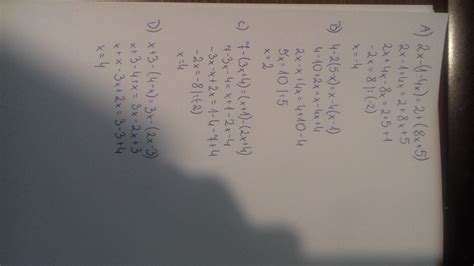 A) 2x-(1-4x)=2+(8x+5)
2x-1+4x=2+8x+5
2x+4x-8x=2+5+1
-2x=8 |:(-2)
x=-4
B) 4-2(5x)=x-4(x-1)
4-10+2x=x-4x+4
2x-x+4x=4+10-4
5x=10 |:5
x=2
C) 7-(3x+4)=(x+1)-(2x+4)
7-3x-4=x+1-2x-4
-3x-x+2x=1-4-7+4
-2x=-8 |:(-2)
x=4
D) x+3-(4-x)=3x-(2x-3)
x+3-4+x=3x-2x+3
x+x-3x+2x=3-3+4
x=4